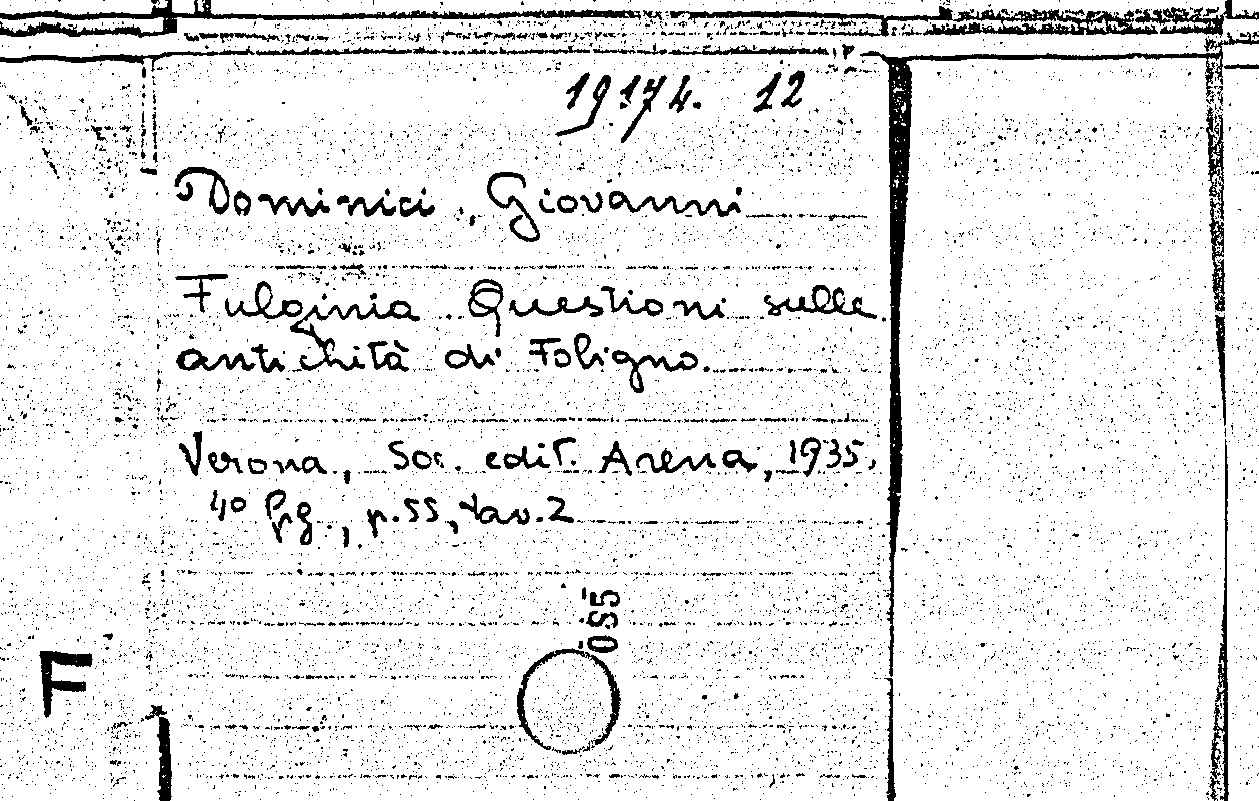 19174. 12
Dominici, Giovanni
Fulginia. Questioni sulle
antichità di Foligno.
Verona, Soc. edit. Arena, 1935.
4° fig., p. 55, tav. 2
055
F